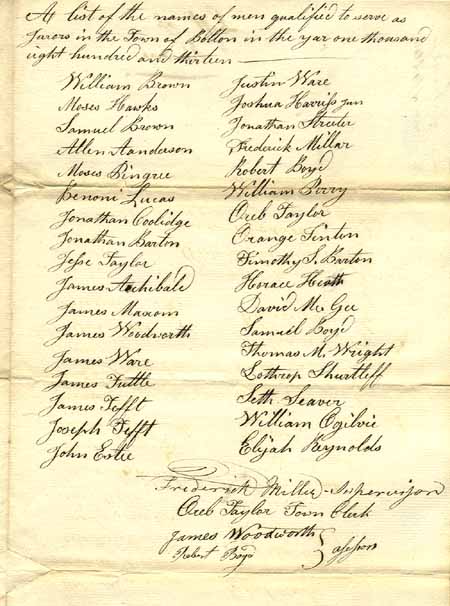 A list of the names of men qualified to serve as
Jurors in the Town of Bolton in the year one thousand
eight hundred and thirteen
William Brown
Moses Hawks
Samuel Brown
Allen Aanderson
Moses Pingree
Benoni Lucas
Jonathan Coolidge
Jonathan Barton
Jesse Taylor
James Archibald
James Maxom
James Woodworth
James Ware
James Tuttle
James Tefft
Joseph Tefft
John Estee
Justin Ware
Joshua Harriss Jun
Jonathan Streeter
Frederick Millar
Robert Boyd
William Perry
Oreb Taylor
Orange Tinten
Timothy S. Barton
Horace Heath
David Mc Gee
Samuel Boyd
Thomas M. Wright
Lothrop Shurtleff
Seth Seaver
William Ogilvie
Elijah Reynolds
Frederick Miller Supervisor
Oreb Taylor Town Clerk
James Woodworth
Robert Boyd